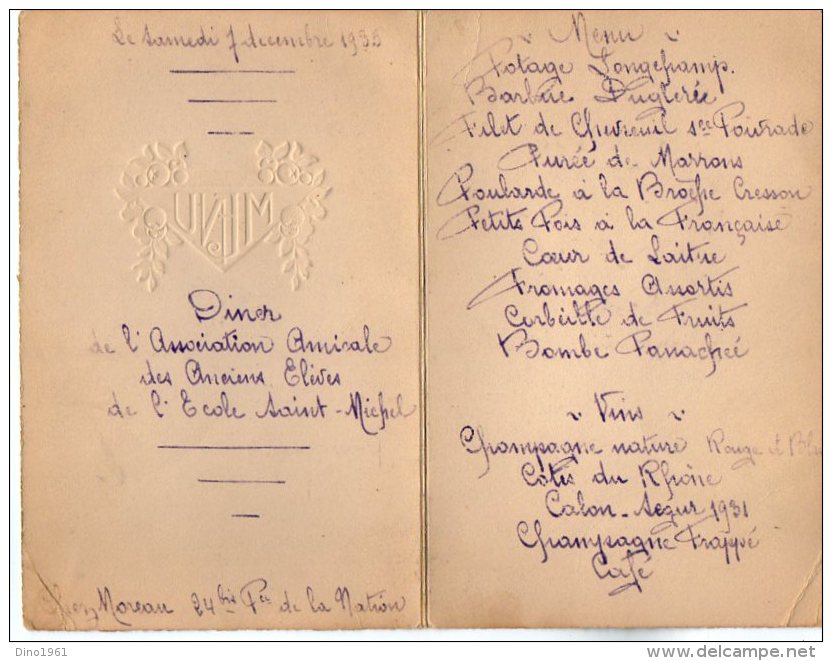 Le Samedi 7 decembre 1935
MENU
Diner
de l'Association Amicale
des Anciens Elèves
de l'Ecole Saint-Michel
Chez Moreau 24 bis Pce de la Nation
Menu
Potage Longchamp.
Barbue Dugleree
Filet de Chevreuil sce Poivrade
Purée de Marrons
Poularde à la Broche Cresson
Petits Pois à la Française
Cœur de Laitue
Fromages Assortis
Corbeille de Fruits
Bombe Panachée
Vins
Champagne nature Rouge et
Côtes du Rhône
Calon-Segur 1931
Champagne Frappé
Café
Dino1961
www.delcampe.net